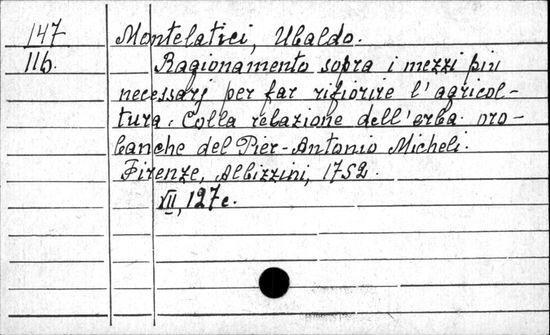 147 Montelatici, Ubaldo.
116. Ragionamento sopra i mezzi più
necessarj per far rifiorire l'agricol-
tura. Colla relazione dell'erba oro-
banche del Pier-Antonio Micheli.
Firenze, Albizzini, 1752.
VII, 127 c.